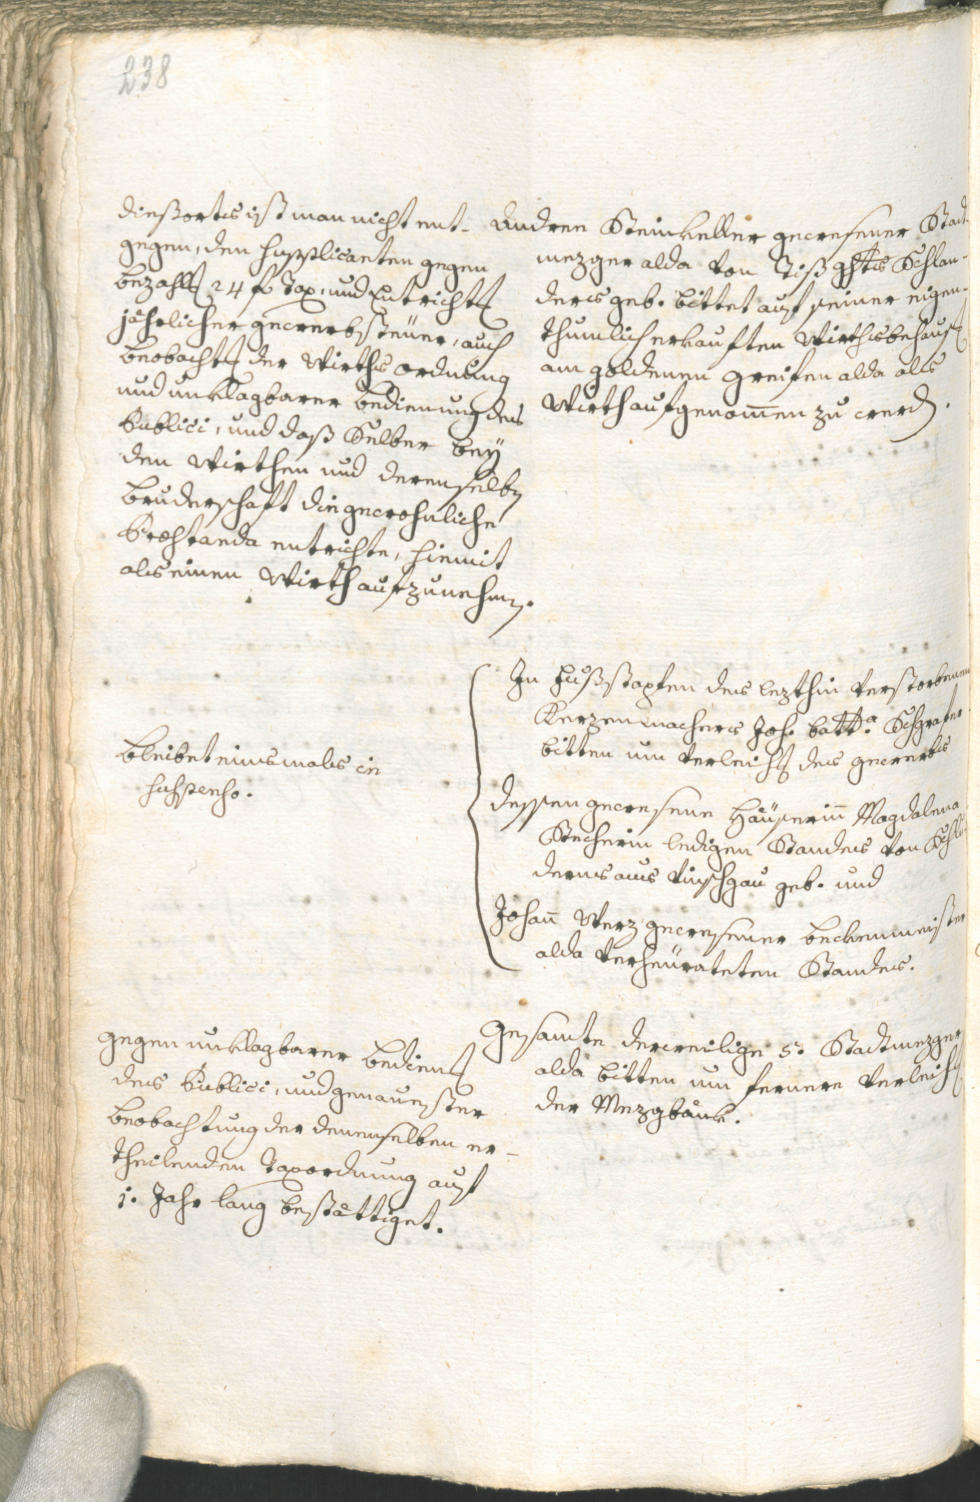 238
diesßorts ist man nicht ent-
gegen, den supplicanten gegen
bezahlt 24 f Tax, und Entricht
jährlicher gewerbsteuer, auch
beobacht der Wirths ordnung
und unklagbarer bedienung des
Publici, und daß Selber beÿ
den Wirthen und derenselbn
bruderschaft die gewohnliche
Prostanda entrichte, hiemit
als einen Wirth aufzunehmn.
Andree Steinkeller gewesener Stadt
mezger alda von Tiß ghts Schlan-
ders geb. bittet auf seiner eigen-
thumlich erkauften Wirthsbehaus
am goldenen Greifen alda als
Wirth aufgenom̅en zu werd.
bleibet einsmals in
suspenso.
In Fußstapfen des lezthin verstorbenen
Kerzenmachers Joh. batta
bitten um verleich des gewerbs
dessen gewesene Häuserin̅ Magdalena
Stecherin ledigen Standes von
derns aus Vinschgau geb. und
Johan̅ Merz gewesener beckenmeister
alda verheürateten Standes.
gegen unklagbarer bedien
des Publici, und genauester
beobachtung der denenselben er-
theilenden Taxordnung auf
1. Jahr lang bestättiget.
Gesamte derweilige 5. Stadtmezger
alda bitten um fernere verleich
der Mezgbänk.